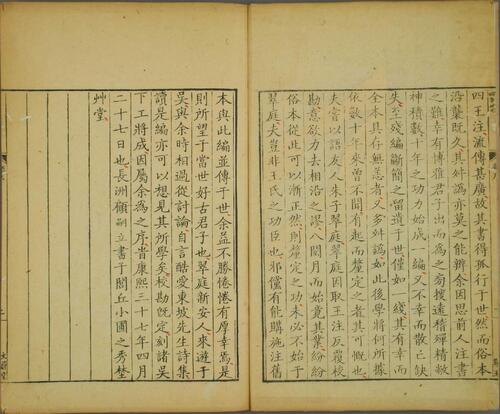 四王注流傳甚廣故其書得孤行于世然而俗本
沿襲既久其舛譌亦莫之能辨余因思前人注書
之難幸有博雅君子出而為之匊搜遠稽殫精敝
神積數十年之功力始成一編又不幸而散亡缺
失至殘編斷簡之留遺于世僅如一綫其有幸而
全本具存無恙者又多舛譌如此後學將何所據
依數十年來曾不聞有起而釐定之者其可慨也
夫嘗以語友人朱子翠庭翠庭因取王注反覆校
勘意欲力去相沿之謬八閱月而始竟其業紛紛
俗本從此可以漸正然則釐定之功未必不始于
翠庭夫豈非王氏之功臣也邪僅有能購施注舊
本與此編並傳于世余益不勝惓惓有厚幸焉是
則所望于當世好古君子也翠庭新安人來遊于
吳與余時相過從討論自言酷愛東坡先生詩集
讀是編亦可以想見其所學矣校勘既定刻諸吳
下工將成因屬余為之序旹康熙三十七年四月
二十七日也長洲顧嗣立書于閭丘小圃之秀埜
艸堂